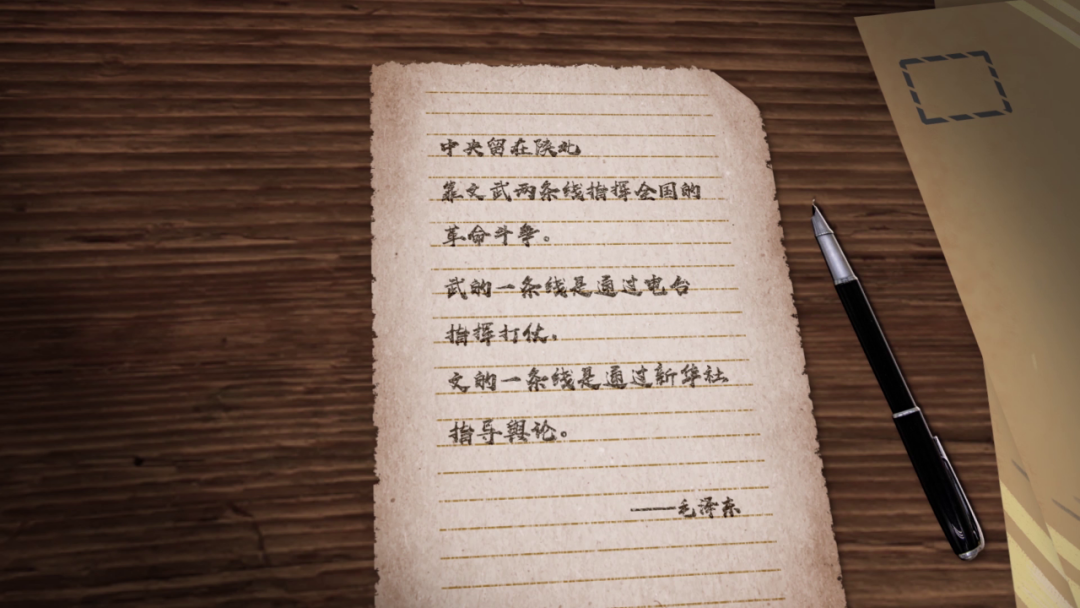 中央留在陕北
靠文武两条线指挥全国的
革命斗争。
武的一条线是通过电台
指挥打仗。
文的一条线是通过新华社
指导舆论。
——毛泽东